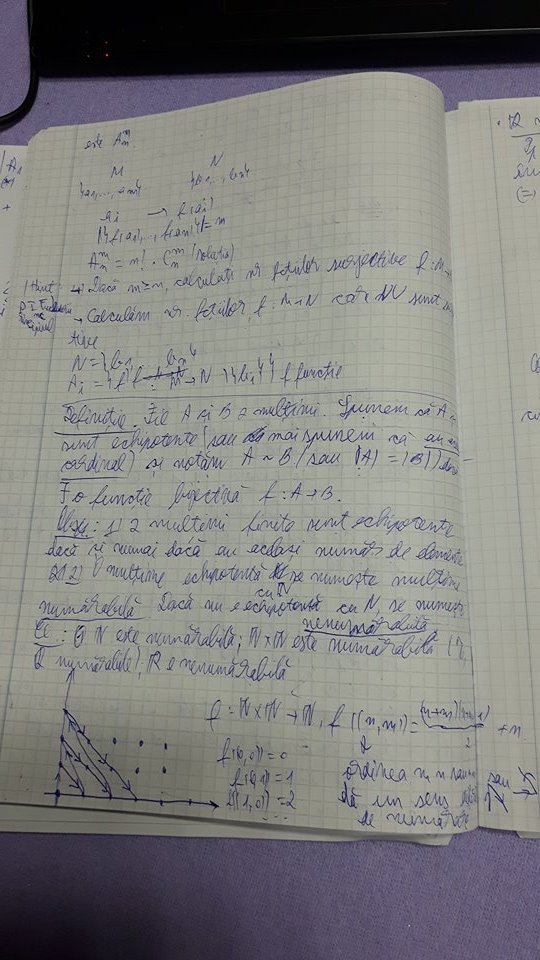 este Aₙᵐ
M N
{a₁,..., aₘ} {b₁,..., bₙ}
aᵢ → f(aᵢ)
|{f(a₁),..., f(aₘ)}| = m
Aₙᵐ = m! · Cₙᵐ (soluția)
Hint: → Dacă m ≥ n, calculați nr fcțiilor surjective f: M→
→ Calculăm nr. fcțiilor f: M→N care NU sunt
tive
N = {b₁, ... bₙ}
Aᵢ = {f | f: M → N \ {bᵢ}} f funcție
Definiție: Fie A și B 2 mulțimi. Spunem că A
sunt echipotente (sau mai spunem că au
cardinal) și notăm A ~ B (sau |A| = |B|) dacă
∃ o funcție bijectivă f: A→B.
Obs: 1) 2 mulțimi finite sunt echipotente
dacă și numai dacă au același număr de elemente
2) O mulțime echipotentă cu ℕ se numește mulțime
numărabilă. Dacă nu e echipotentă cu ℕ, se numește
nenumărabilă
Ex.: ℕ este numărabilă; ℕ×ℕ este numărabilă (ℤ,
ℚ numărabile), ℝ e nenumărabilă
f = ℕ×ℕ → ℕ, f((m,n)) = (m+n)(m+n+1) / 2 + m
f(0,0) = 0
f(0,1) = 1
f((1,0)) = 2
ordinea
dă un sens
de numărare
sau